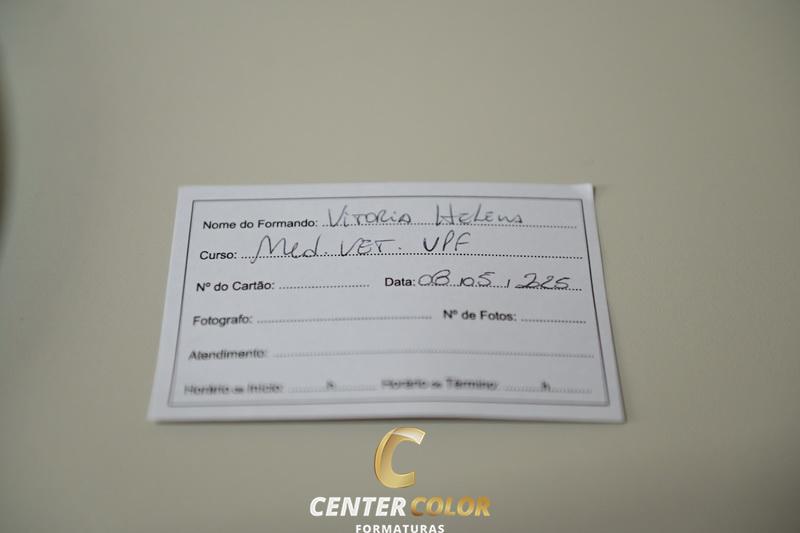 Nome do Formando: Vitoria Helena
Curso: Med. Vet. UPF
Nº do Cartão: Data: 08/05/225
Fotografo: Nº de Fotos:
Atendimento:
Horário de Início: h Horário de Término: h
CENTER COLOR
FORMATURAS